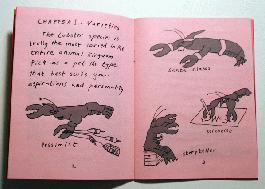 CHAPTER 1: Varieties
The Lobster species is
truly the most varied in the
entire animal kingdom
Pick as a pet the type
that best suits your
aspirations and personality
Pessimist
storyteller
2
3